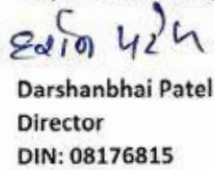 પટેલ
Darshanbhai Patel
Director
DIN: 08176815